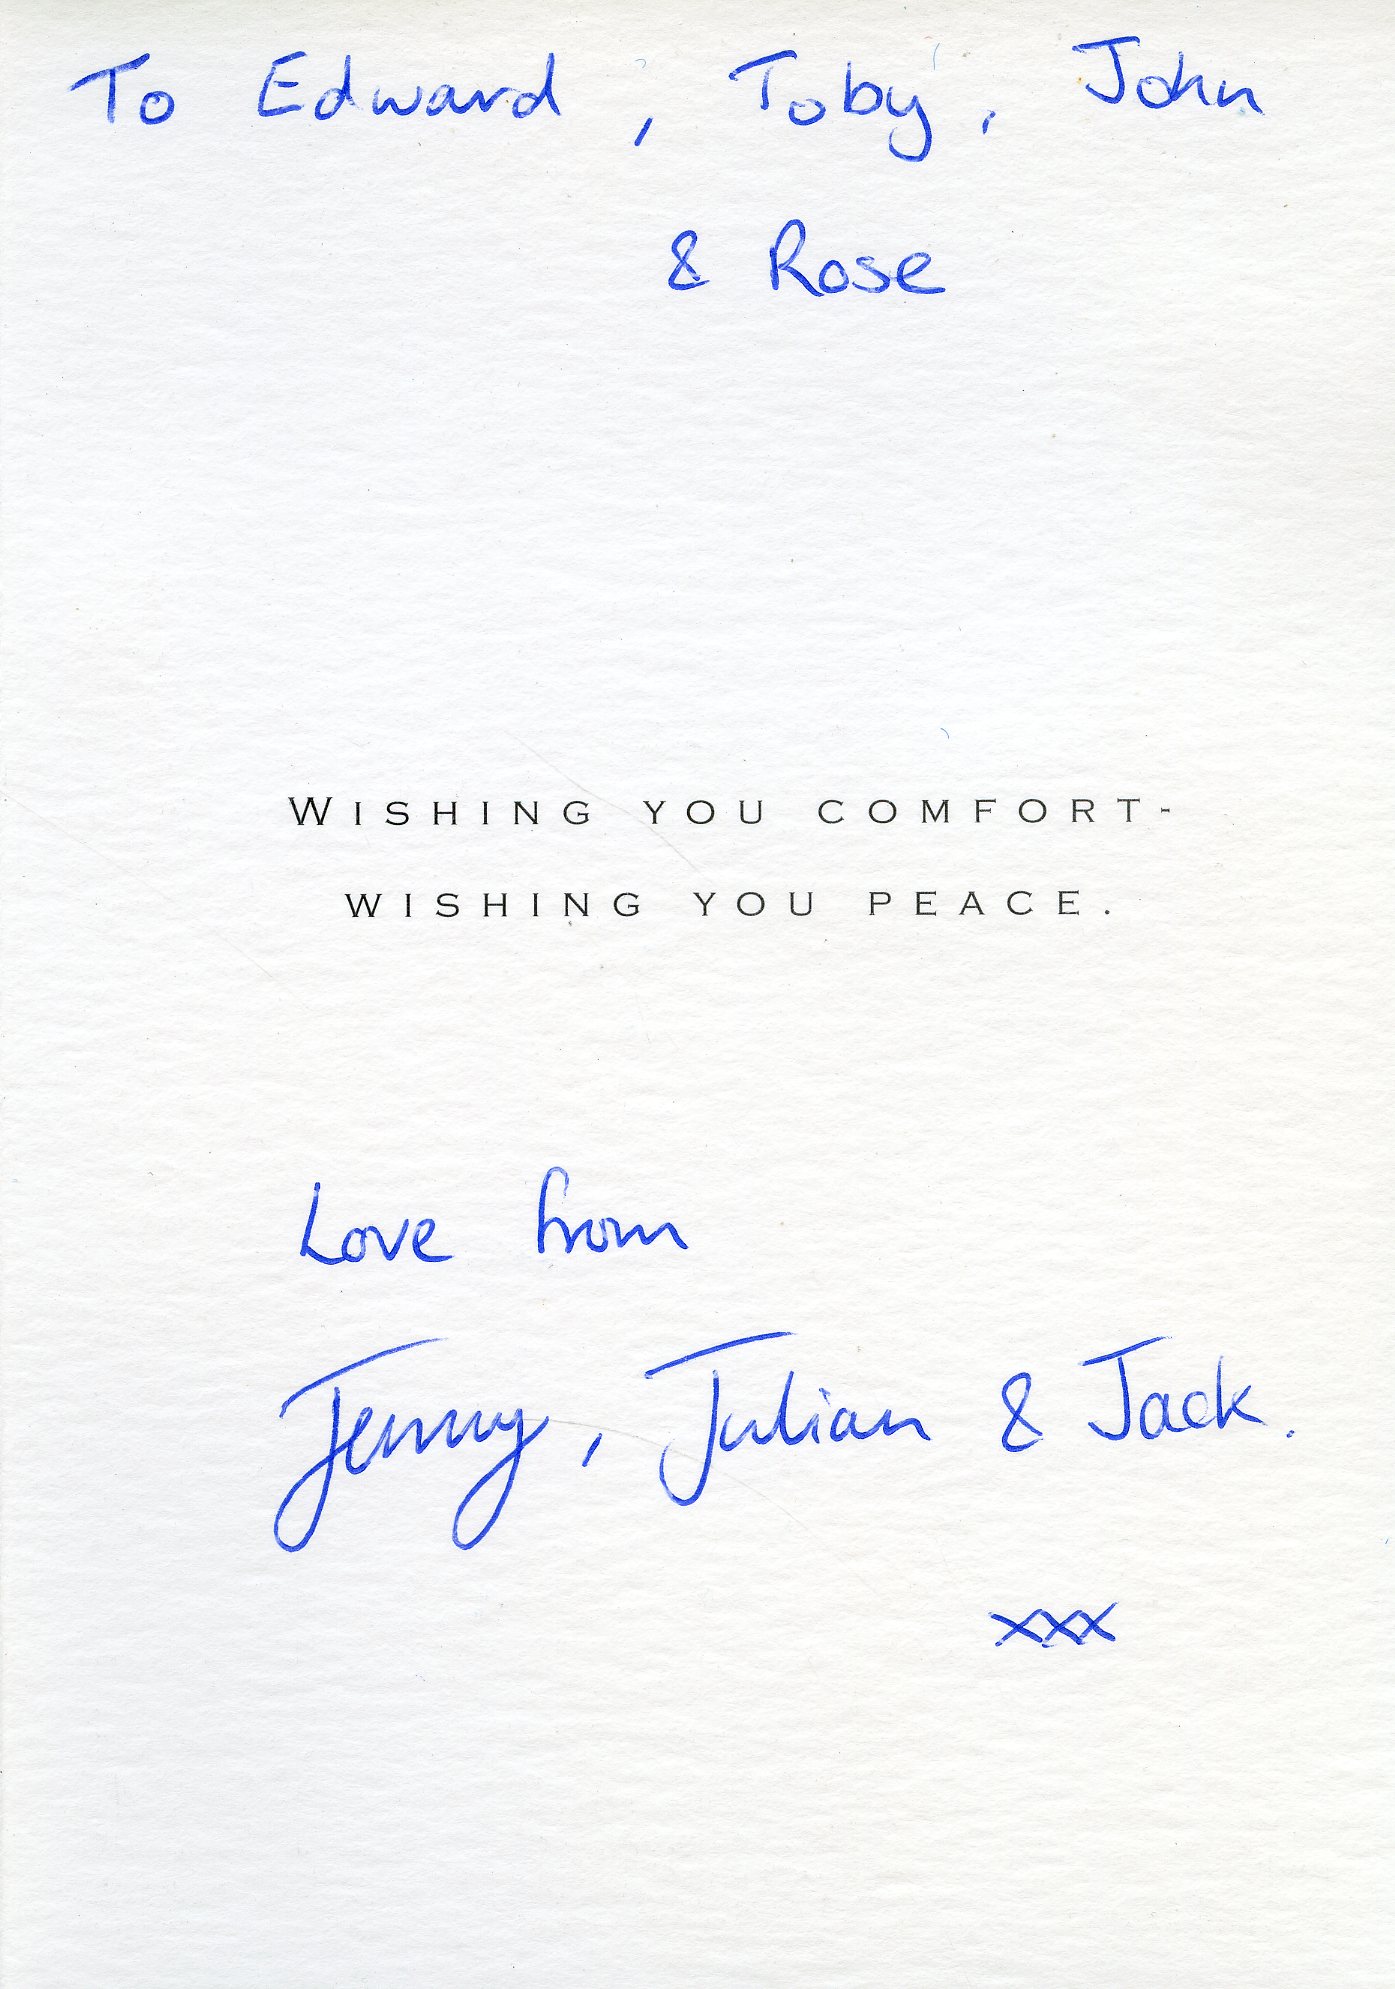 To Edward, Toby, John
& Rose
WISHING YOU COMFORT-
WISHING YOU PEACE.
Love from
Jenny, Julian & Jack.
xxx